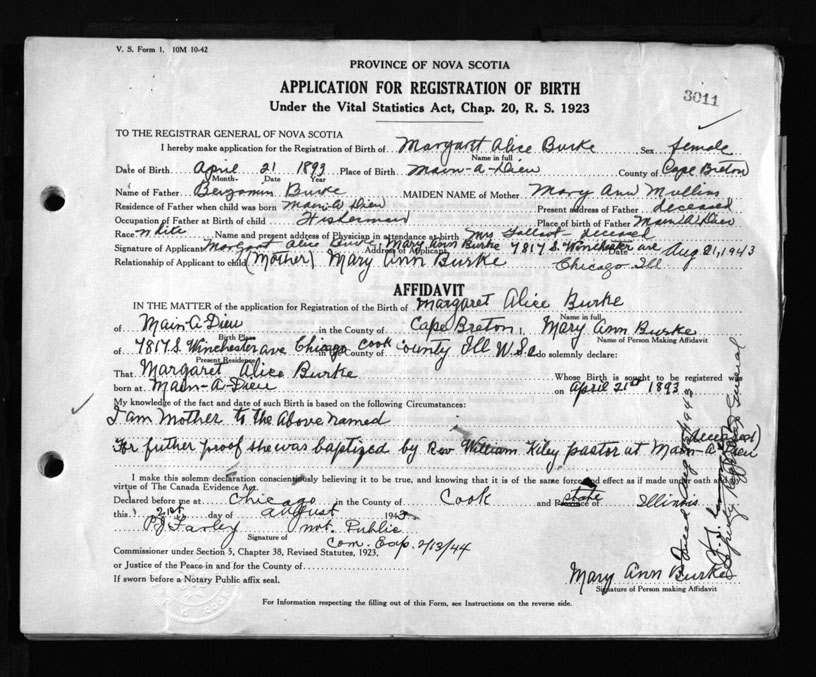 V. S. Form 1. 10M 10-42
PROVINCE OF NOVA SCOTIA
APPLICATION FOR REGISTRATION OF BIRTH
Under the Vital Statistics Act, Chap. 20, R. S. 1923
3011
TO THE REGISTRAR GENERAL OF NOVA SCOTIA
I hereby make application for the Registration of Birth of Margaret Alice Burke Sex female
Name in full
Date of Birth April 21 1893 Place of Birth Main-a-Dieu County of Cape Breton
Month Date Year
Name of Father Benjamin Burke MAIDEN NAME of Mother Mary Ann Mullins
Residence of Father when child was born Main-A Dieu Present address of Father deceased
Occupation of Father at Birth of child Fisherman Place of birth of Father Main A Dieu
Race White Name and present address of Physician in attendance at birth Mrs deceased
Signature of Applicant Margaret Alice Burke, Mary Ann Burke 7817 S. Winchester ave Date Aug 21, 1943
Address of Applicant
Relationship of Applicant to child (Mother) Mary Ann Burke Chicago Ill
AFFIDAVIT
IN THE MATTER of the application for Registration of the Birth of Margaret Alice Burke
Name in full
of Main-A-Dieu in the County of Cape Breton I, Mary Ann Burke
Birth Place Name of Person Making Affidavit
of 7817 S. Winchester ave Chicago in the County of Cook County Ill U.S.A. do solemnly declare:
Present Residence
That Margaret Alice Burke Whose Birth is sought to be registered was
born at Main-A-Dieu on April 21st 1893
My knowledge of the fact and date of such Birth is based on the following Circumstances:
I am Mother to the Above named
(deceased)
For futher proof she was baptized by Rev William Kiley pastor at Main-A-Dieu
I make this solemn declaration conscientiously believing it to be true, and knowing that it is of the same force and effect as if made under oath and by
virtue of The Canada Evidence Act.
Declared before me at Chicago in the County of Cook and Province of state Illinois
this 21st day of August 1943
P.J. Farley not. Public
Signature of
Com. Exp. 2/13/44
Commissioner under Section 5, Chapter 38, Revised Statutes, 1923,
or Justice of the Peace in and for the County of
If sworn before a Notary Public affix seal.
Mary Ann Burke
Signature of Person making Affidavit
For Information respecting the filling out of this Form, see Instructions on the reverse side.